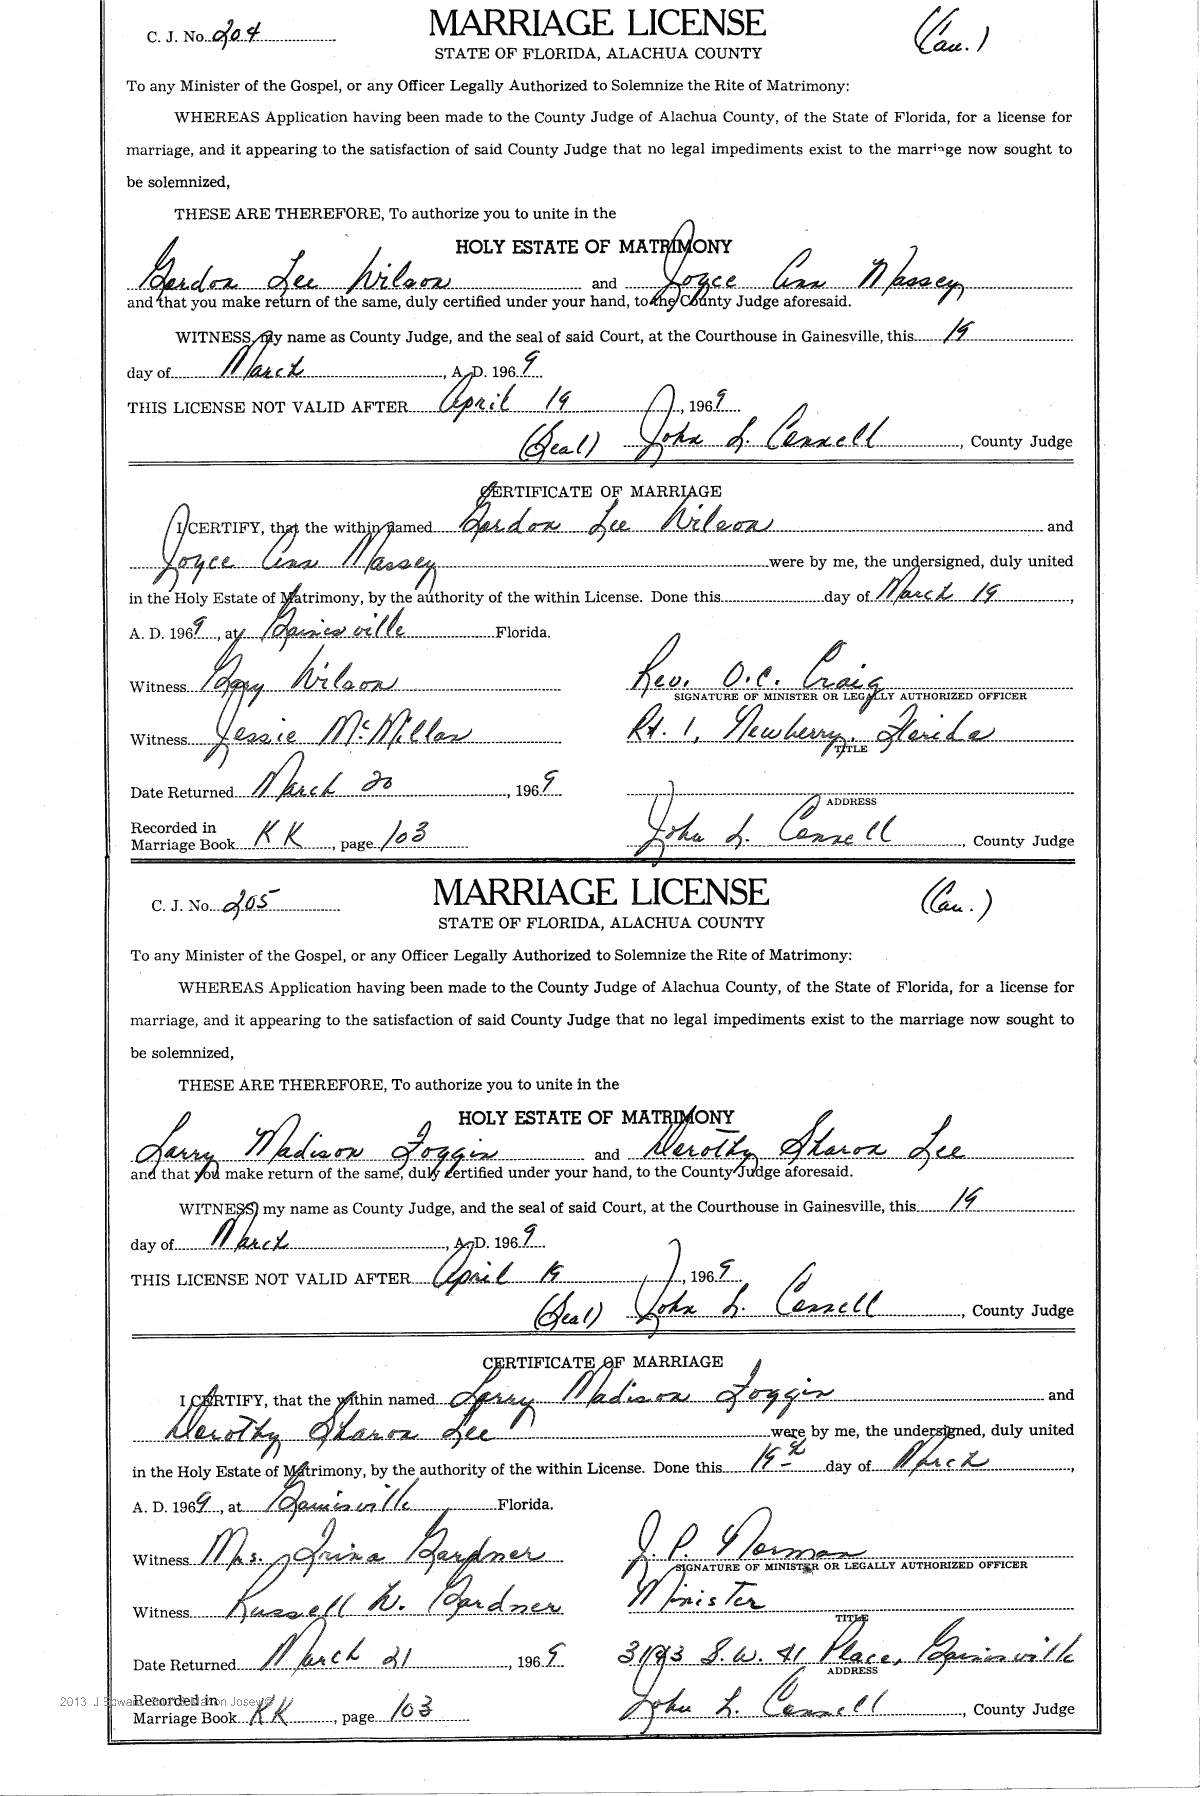 C. J. No. 204
MARRIAGE LICENSE
(Cau.)
STATE OF FLORIDA, ALACHUA COUNTY
To any Minister of the Gospel, or any Officer Legally Authorized to Solemnize the Rite of Matrimony:
WHEREAS Application having been made to the County Judge of Alachua County, of the State of Florida, for a license for
marriage, and it appearing to the satisfaction of said County Judge that no legal impediments exist to the marriage now sought to
be solemnized,
THESE ARE THEREFORE, To authorize you to unite in the
HOLY ESTATE OF MATRIMONY
Gordon Lee Wilson and Joyce Ann Massey
and that you make return of the same, duly certified under your hand, to the County Judge aforesaid.
WITNESS, my name as County Judge, and the seal of said Court, at the Courthouse in Gainesville, this 19
day of March, A. D. 1969
THIS LICENSE NOT VALID AFTER April 19, 1969
(Seal) John L. Connell, County Judge
CERTIFICATE OF MARRIAGE
I CERTIFY, that the within named Gordon Lee Wilson and
Joyce Ann Massey were by me, the undersigned, duly united
in the Holy Estate of Matrimony, by the authority of the within License. Done this day of March 19,
A. D. 1969, at Gainesville Florida.
Witness Gary Wilson Rev. O.C. Craig
SIGNATURE OF MINISTER OR LEGALLY AUTHORIZED OFFICER
Witness Jessie McMillan Rt. 1, Newberry, Florida
TITLE
Date Returned March 20, 1969
ADDRESS
Recorded in
Marriage Book KK, page 103 John L. Connell, County Judge
C. J. No. 205
MARRIAGE LICENSE
(Cau.)
STATE OF FLORIDA, ALACHUA COUNTY
To any Minister of the Gospel, or any Officer Legally Authorized to Solemnize the Rite of Matrimony:
WHEREAS Application having been made to the County Judge of Alachua County, of the State of Florida, for a license for
marriage, and it appearing to the satisfaction of said County Judge that no legal impediments exist to the marriage now sought to
be solemnized,
THESE ARE THEREFORE, To authorize you to unite in the
HOLY ESTATE OF MATRIMONY
Larry Madison Foggin and Dorothy Sharon Lee
and that you make return of the same, duly certified under your hand, to the County Judge aforesaid.
WITNESS, my name as County Judge, and the seal of said Court, at the Courthouse in Gainesville, this 19
day of March, A. D. 1969
THIS LICENSE NOT VALID AFTER April 19, 1969
(Seal) John L. Connell, County Judge
CERTIFICATE OF MARRIAGE
I CERTIFY, that the within named Larry Madison Foggin and
Dorothy Sharon Lee were by me, the undersigned, duly united
in the Holy Estate of Matrimony, by the authority of the within License. Done this 19th day of March,
A. D. 1969, at Gainesville Florida.
Witness Mrs. Irina Gardner J. P. Norman
SIGNATURE OF MINISTER OR LEGALLY AUTHORIZED OFFICER
Witness Russell W. Gardner Minister
TITLE
Date Returned March 21, 1969 S.W. 41 Place, Gainesville
ADDRESS
2013 Josey
Recorded in
Marriage Book KK, page 103 John L. Connell, County Judge